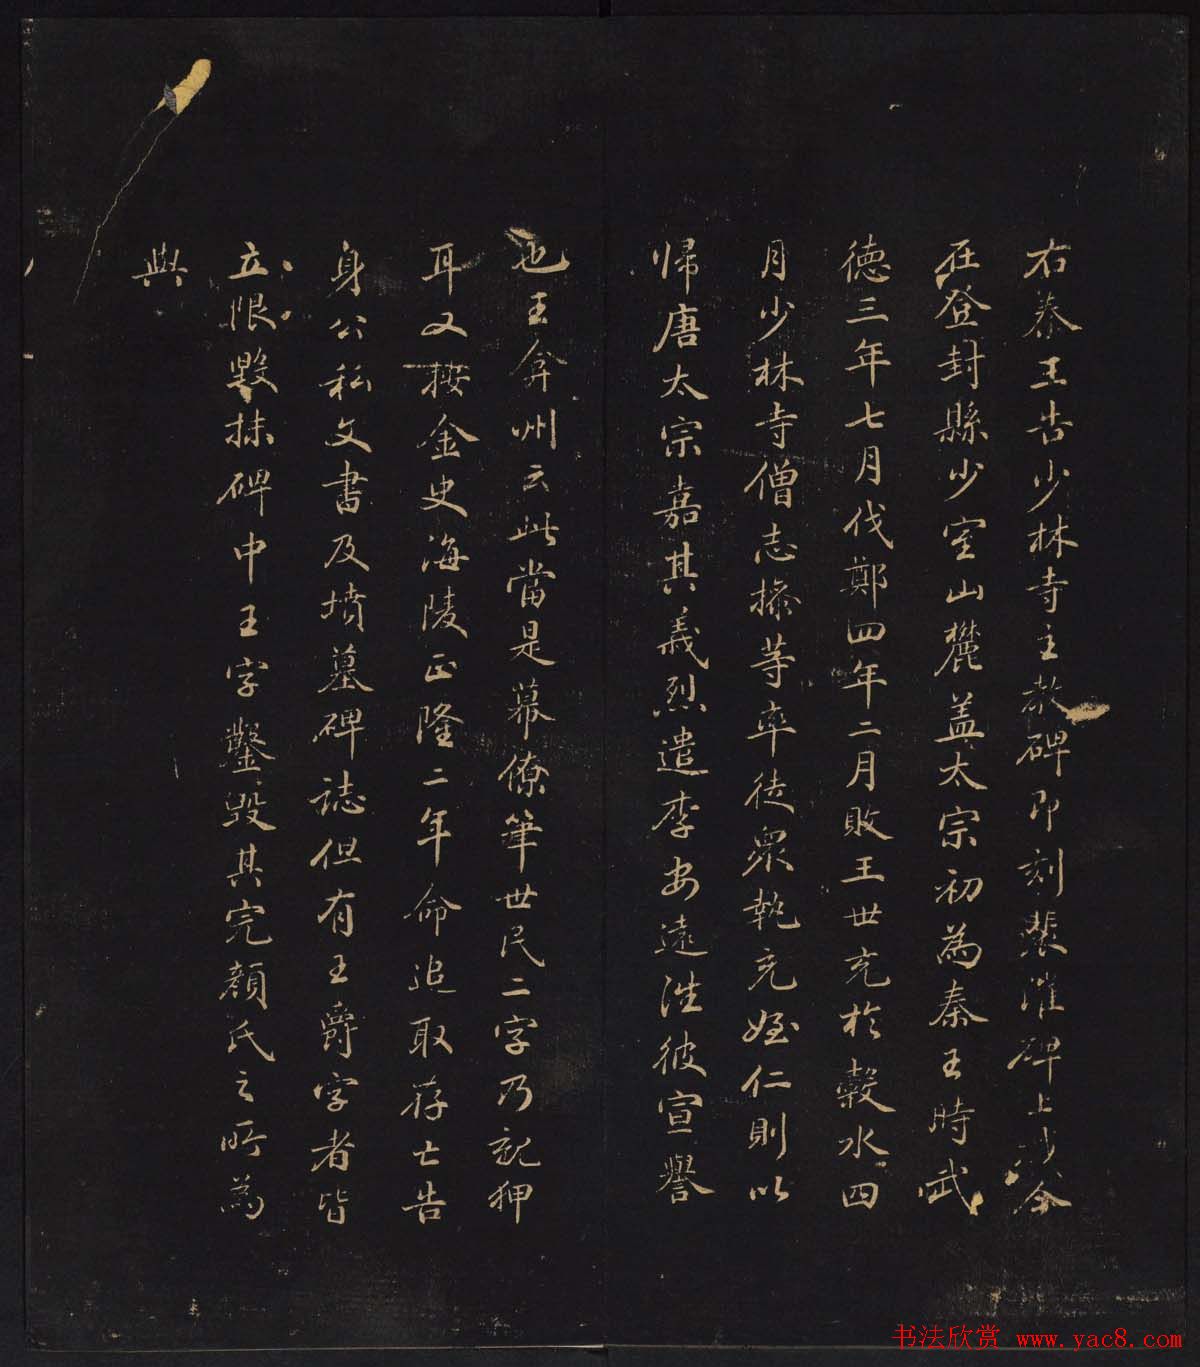 右秦王告少林寺主教碑即刻裴漼碑上截今
在登封縣少室山麓蓋太宗初為秦王時武
德三年七月伐鄭四年二月敗王世充於穀水四
月少林寺僧志操等率徒眾執充姪仁則以
歸唐太宗嘉其義烈遣李安遠往彼宣譽
也王弇州云此當是幕僚筆世民二字乃親押
耳又按金史海陵正隆二年命追取存亡告
身公私文書及墳墓碑誌但有王爵字者皆
立限毀抹碑中王字鑿毀其完顏氏之所為
與
书法欣赏 www.yac8.com